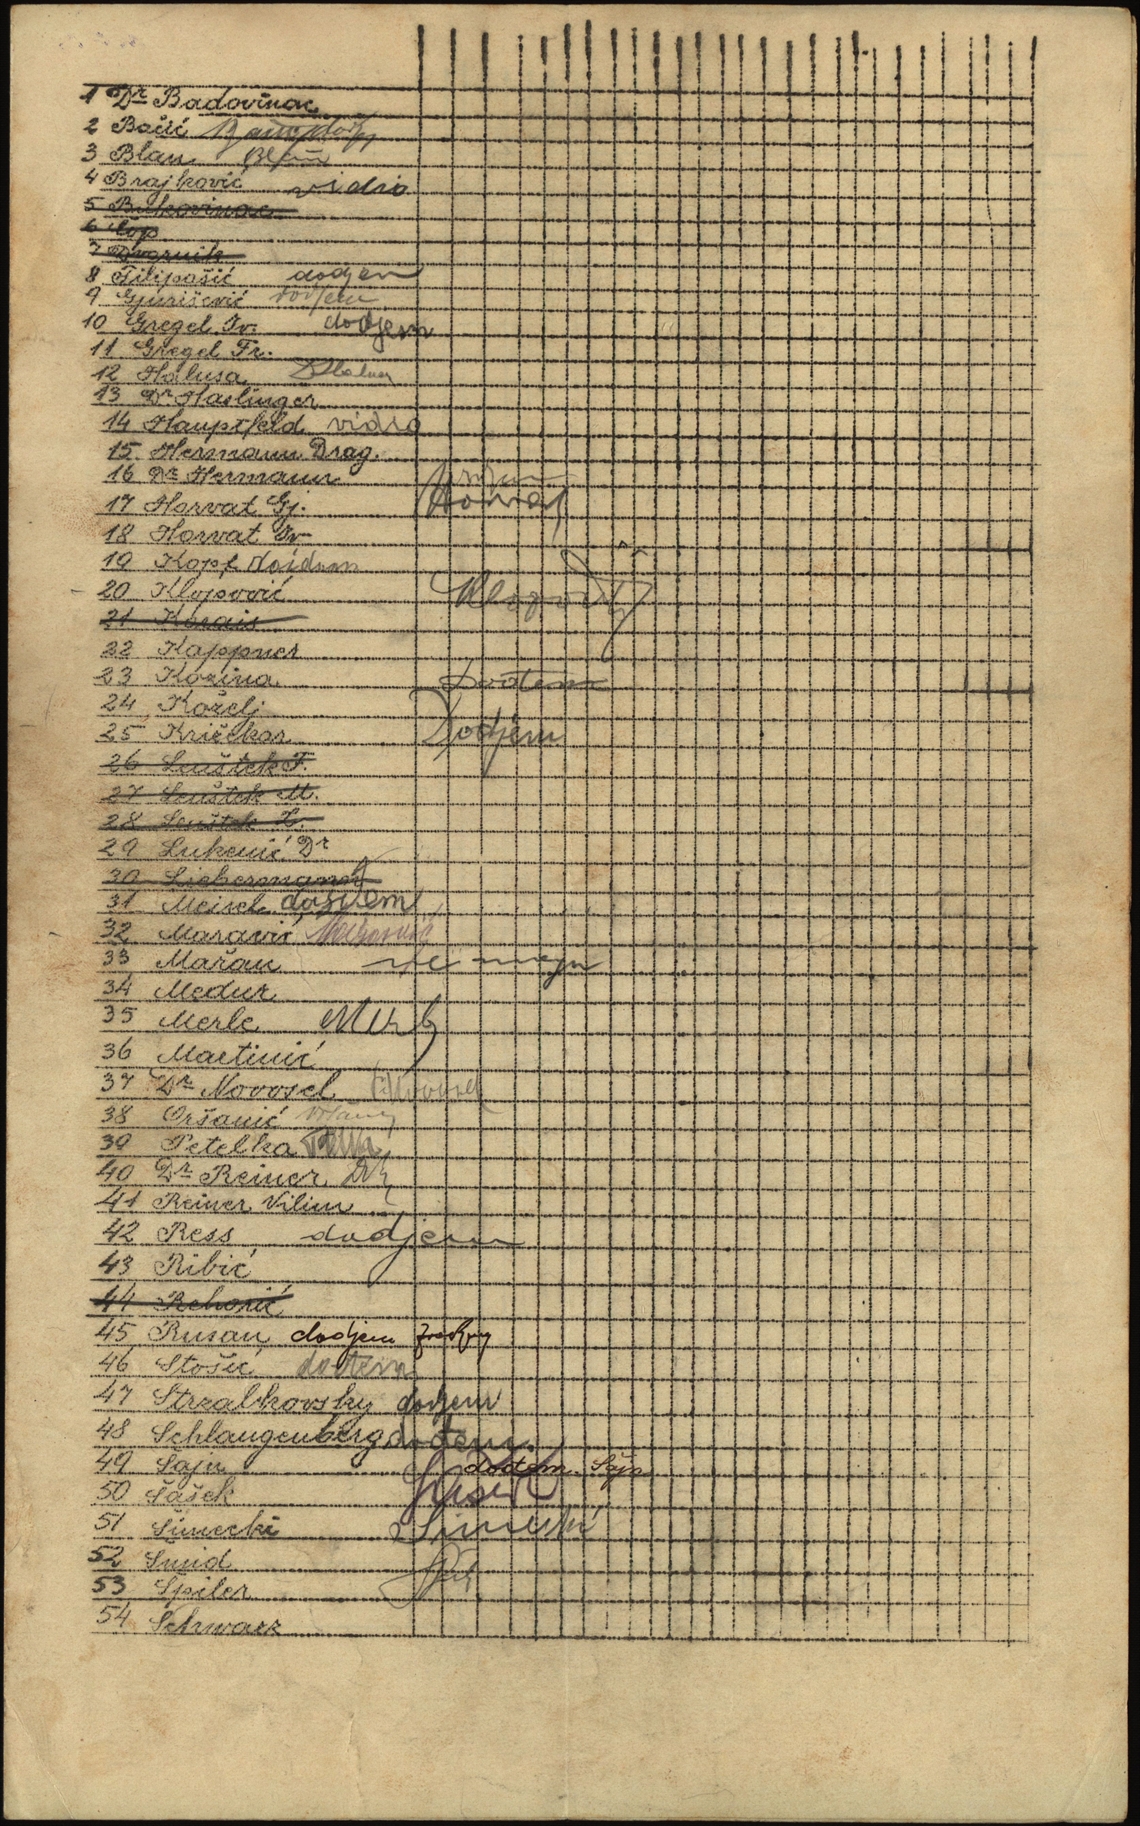 1 Dr Badovinac
2 Bačić
3 Blau Blau
4 Brajković vidio
5 Bukovinac
6 Čop
7 Dvornik
8 Filipašić dodjem
9 Gjurišević dodjem
10 Gregel Iv. dodjem
11 Gregel Fr.
12 Halusa
13 Dr Haslinger
14 Hauptfeld vidio
15 Hermann Drag.
16 Dr Hermann
17 Horvat Gj. Horvat
18 Horvat Iv
19 Kopf doidem
20 Klopović
21
22 Kappner
23 Kozina dodem
24 Koželj
25 Križekar Dodjem
26 Leuštek F.
27 Leuštek M.
28 Leuštek
29 Lukenić Dr
30 Liebermann
31 Meisel
32 Maravić
33 Mažau ne mogu
34 Medur
35 Merle
36 Martinić
37 Dr Novosel Novosel
38 Oršanić
39 Petelka
40 Dr Reiner
41 Reiner Vilim
42 Ress dodjem
43 Ribić
44
45 Rusan dodjem
46 Stošić dodem
47 Strzalkovsky dodjem
48 Schlangenberg dodem
49 Šajn dodem Šajn
50 Šašek Šašek
51 Šimecki Šimecki
52 Šmid
53 Špiler
54 Schwarz